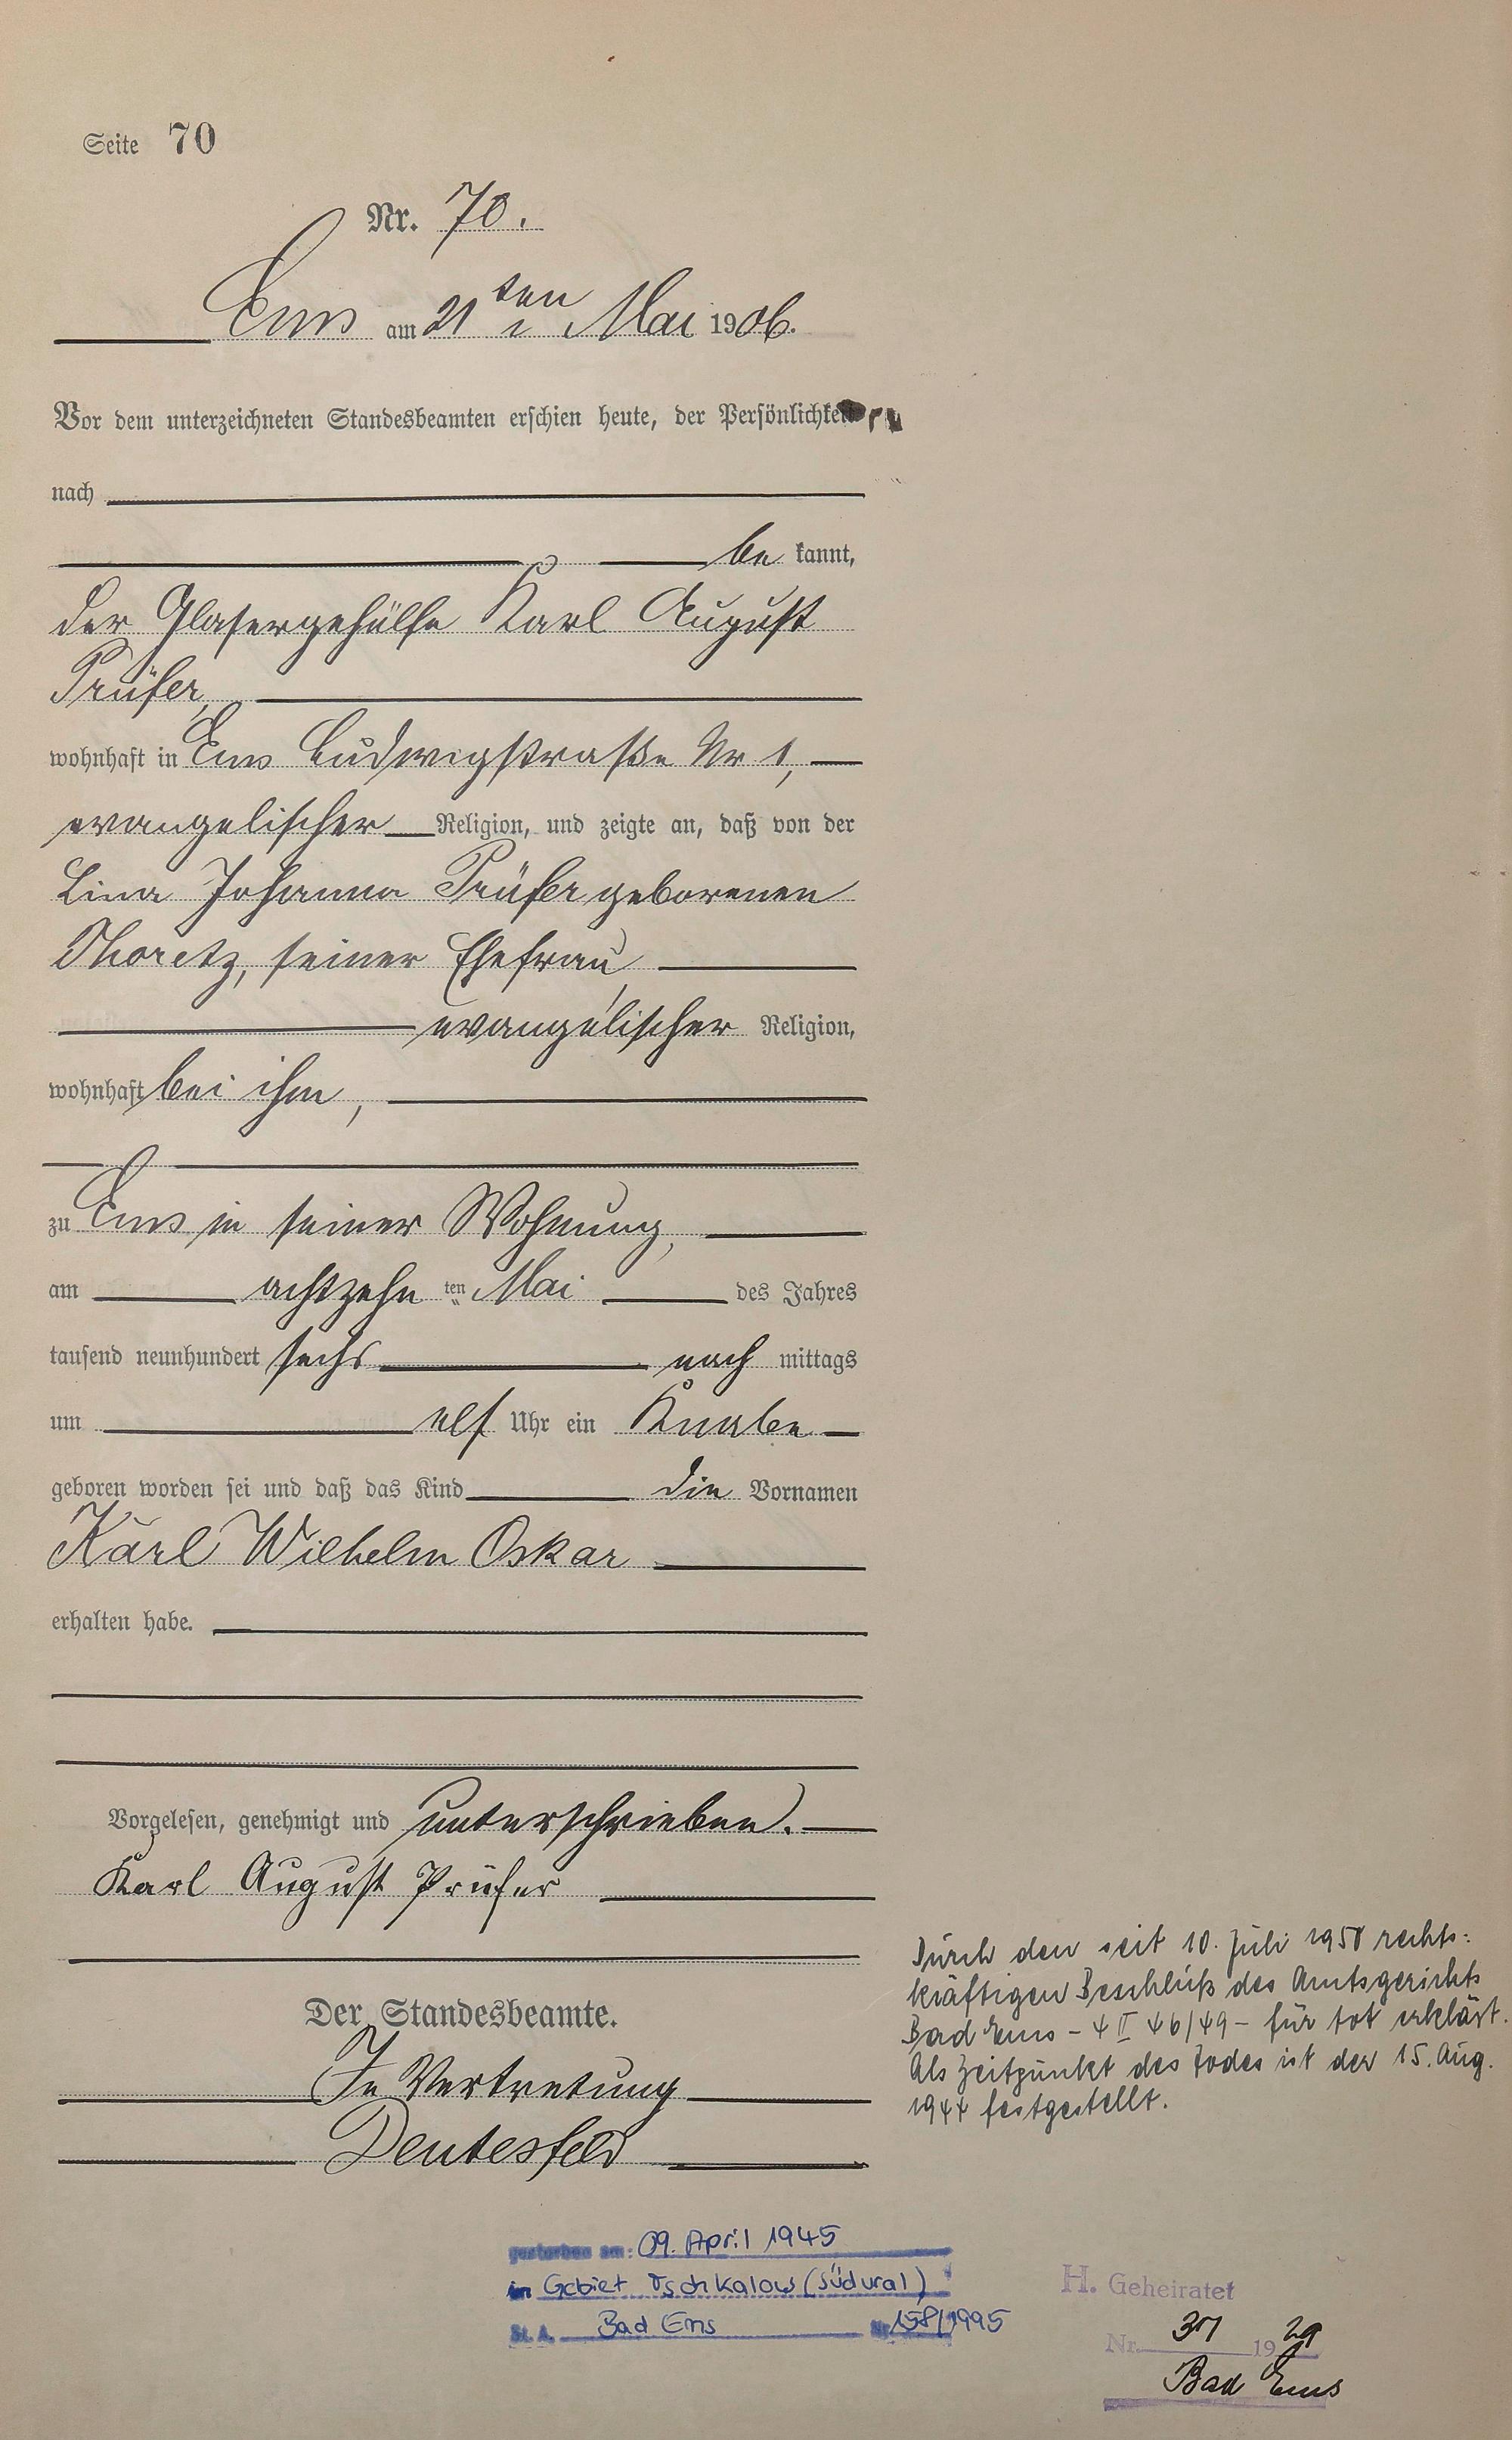 Seite 70
Nr. 70.
Ems am 21ten Mai 1906.
Vor dem unterzeichneten Standesbeamten erschien heute, der Persönlichkeit
nach
be kannt,
der Glasergehülfe Karl August
Prüfer,
wohnhaft in Ems Ludwigstraße Nr 1,
evangelischer Religion, und zeigte an, daß von der
Lina Johanna Prüfer geborenen
seiner Ehefrau,
evangelischer Religion,
wohnhaft bei ihm,
zu Ems in seiner Wohnung,
am achtzehn ten Mai des Jahres
tausend neunhundert sechs nach mittags
um elf Uhr ein Knabe
geboren worden sei und daß das Kind die Vornamen
Karl Wilhelm Oskar
erhalten habe.
Vorgelesen, genehmigt und unterschrieben.
Karl August Prüfer
Der Standesbeamte.
In Vertretung
Deutesfeld
Durch den seit 10. Juli 1950 rechts:
kräftigen Beschluß des Amtsgerichts
Bad Ems - 4 II 46/49 - für tot erklärt.
Als Zeitpunkt des Todes ist der 15. Aug.
1944 festgestellt.
gestorben am: 09. April 1945
in Gebiet Tschkalow (Südural)
St. A. Bad Ems Nr. 158/1995
H. Geheiratet
Nr. 1929
Bad Ems